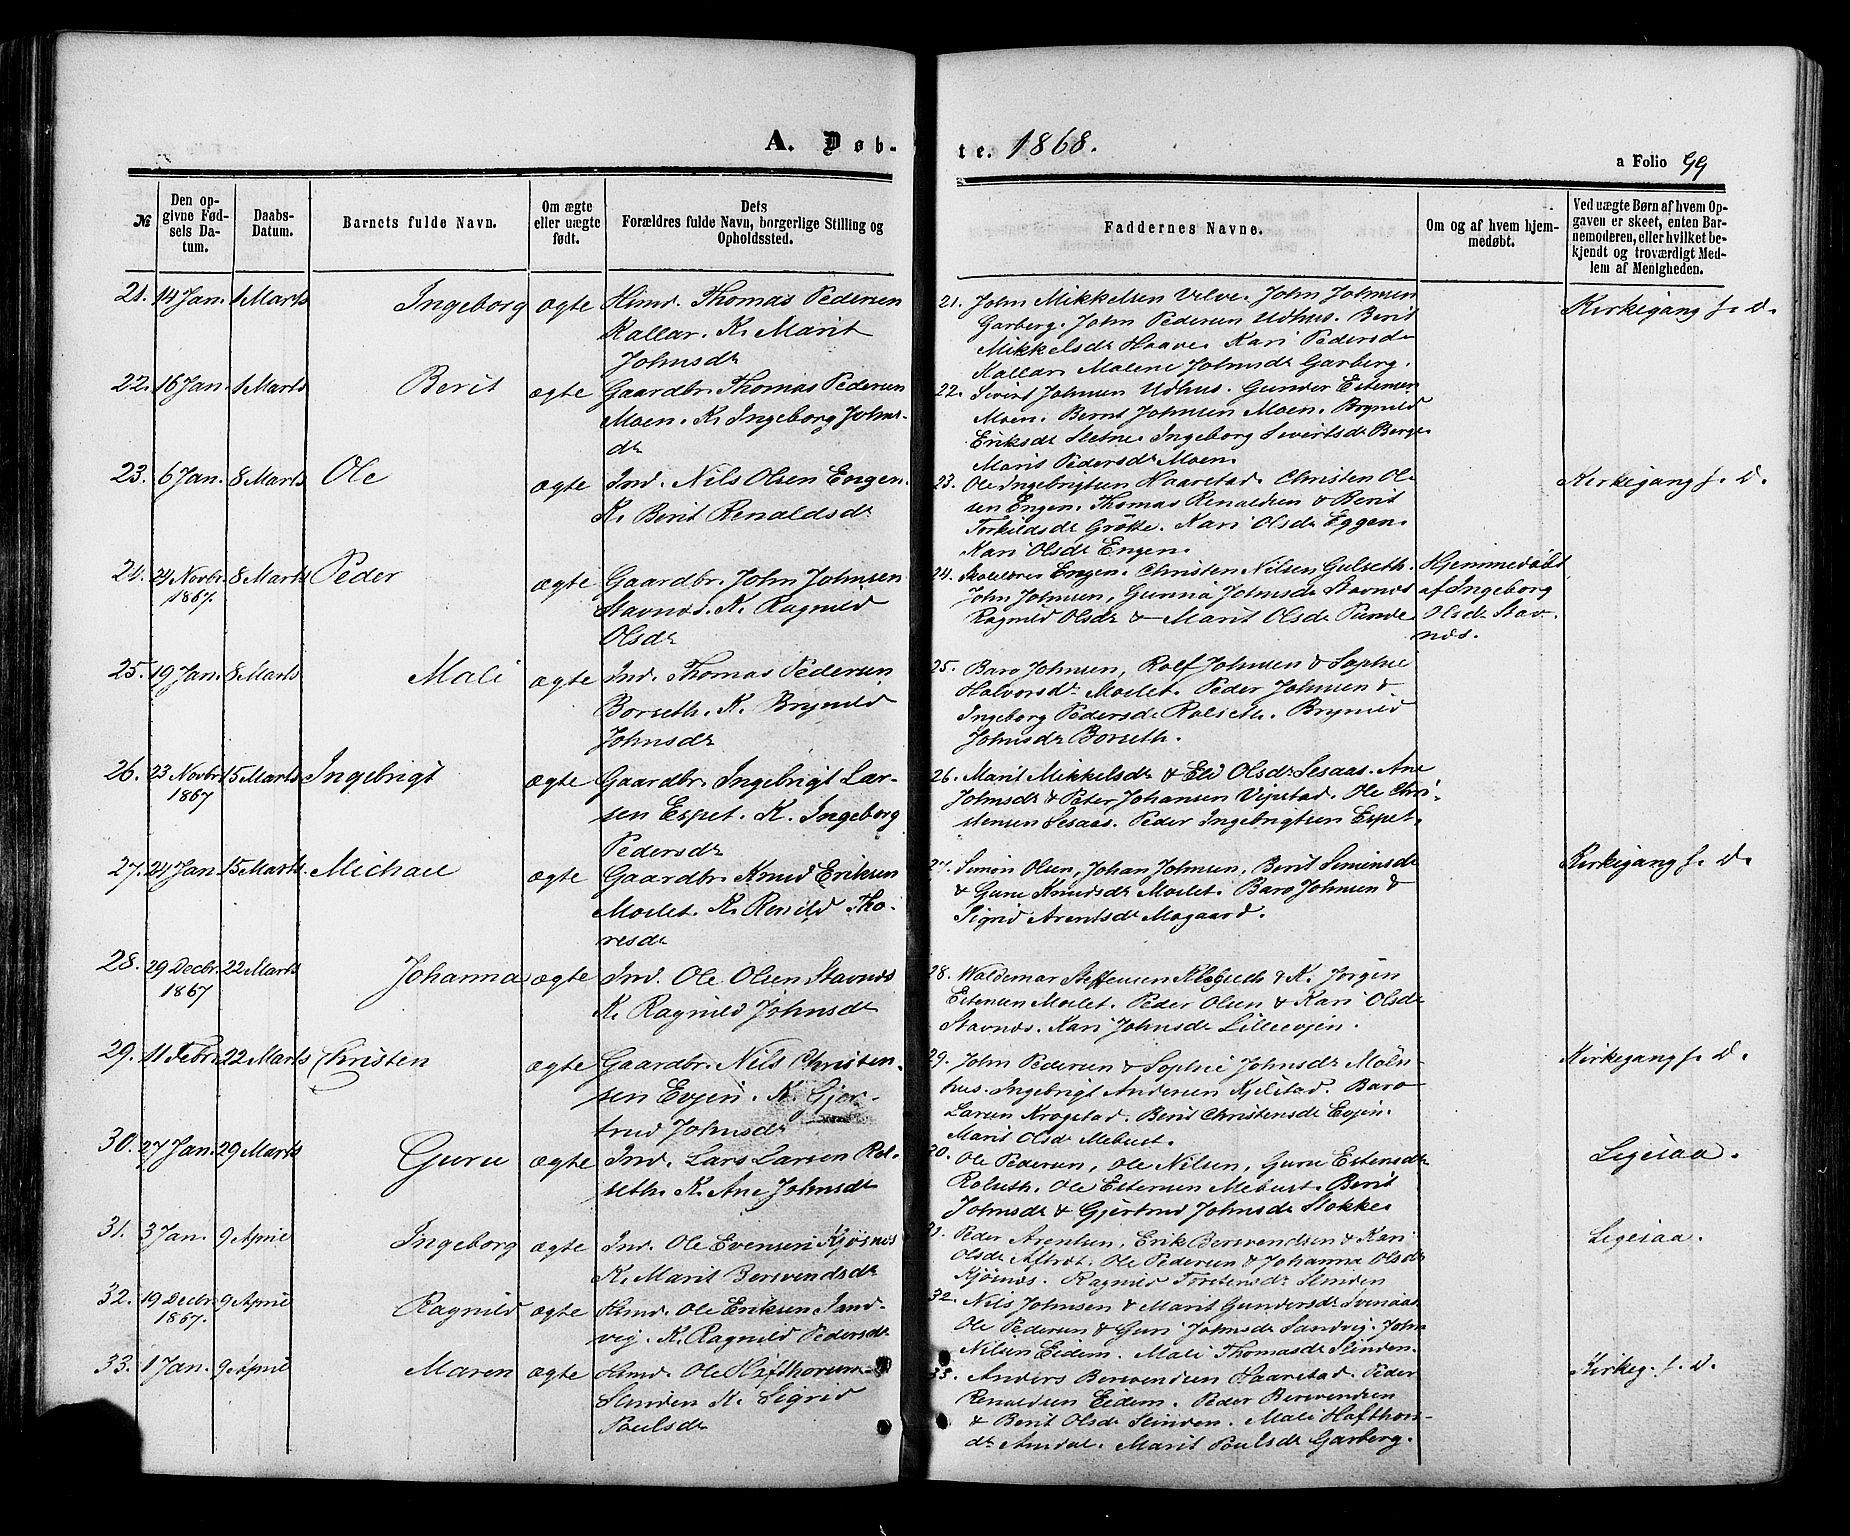 A. Døb-
te. 1868.
a Folio 99
№
Den op-
givne Fød-
sels Da-
tum.
Daabs-
Datum.
Barnets fulde Navn.
Om ægte
eller uægte
født.
Dets
Forældres fulde Navn, borgerlige Stilling og
Opholdssted.
Faddernes Navne.
Om og af hvem hjem-
medøbt.
Ved uægte Børn af hvem Op-
gaven er skeet, enten Bar-
nemoderen, eller hvilket be-
kjendt og troværdigt Med-
lem af Menigheden.
21. 14 Jan. 1 Marts Ingeborg ægte Hmd. Thomas Pedersen
Kallar. K. Marit
Johnsdr
21. John Mikkelsen Velve. John Johnsen
Garberg. John Pedersen Udhus. Berit
Mikkelsdr Haave. Kari Pedersdr
Kallar. Malene Johnsdr Garberg.
Kirkegang f. D.
22. 16 Jan. 1 Marts Berit ægte Gaardbr. Thomas Pedersen
Moen. K. Ingeborg Johns-
dr
22. Sivert Johnsen Udhus. Gunder Estensen
Moen. Bernt Johnsen Moen. Brynild
Eriksdr Sletne. Ingeborg Sivertsdr Berge
Marit Pedersdr Moen.
23. 6 Jan. 8 Marts Ole ægte Ind. Nils Olsen Engen.
K. Berit Renaldsdr
23. Ole Ingebrigtsen Haarstad. Christen Ol-
sen Engen. Thomas Renaldsen & Berit
Torkildsdr Grøtte. Kari Olsdr Eggen.
Kari Olsdr Engen.
Kirkegang f. D.
24. 24 Novbr. 8 Marts Peder ægte Gaardbr. John Johnsen
1867.
Stavnes. K. Ragnild
Olsdr
24. Skolelærer Engen. Christen Nilsen Gulseth.
John Johnsen, Gunna Johnsdr Stavnes
Ragnild Olsdr & Marit Olsdr Punde
Hjemmedøbt
af Ingeborg
Olsdr Stav-
nes.
25. 19 Jan. 8 Marts Mali ægte Ind. Thomas Pedersen
Borseth. K. Brynild
Johnsdr
25. Baro Johnsen, Rolf Johnsen & Sophie
Halvorsdr Moslet. Peder Johnsen &
Ingeborg Pedersdr Rolseth. Brynild
Johnsdr Borseth.
26. 23 Novbr 15 Marts Ingebrigt ægte Gaardbr. Ingebrigt Lar-
1867
sen Espet. K. Ingeborg
Pedersdr
26. Marit Mikkelsdr & Eld Olsdr Sesaas. Ane
Johnsdr & Peter Johansen Vipstad. Ole Chri-
stensen Sesaas. Peder Ingebrigtsen Espet.
27. 24 Jan. 15 Marts Michael ægte Gaardbr. Knud Eriksen
Moslet. K. Renild Tho-
resdr
27. Simon Olsen, Johan Johnsen, Berit Simonsdr
& Guru Knudsdr Moslet. Baro Johnsen &
Sigrid Arentsdr Mogaard.
Kirkegang f. D.
28. 29 Decbr. 22 Marts Johanna ægte Ind. Ole Olsen Stavnes
1867
K. Ragnild Johnsdr
28. Waldemar Steffensen & K. Jørgen
Estensen Moslet. Peder Olsen & Kari Olsdr
Stavnes. Kari Johnsdr Lilleevjen.
29. 11 Febr. 22 Marts Christen ægte Gaardbr. Nils Christen-
sen Evjen. K. Gjer-
trud Johnsdr
29. John Pedersen & Sophie Johnsdr Møln-
hus. Ingebrigt Andersen Kjelstad. Baro
Larsen Krogstad. Berit Christensdr Evjen.
Marit Olsdr Mebust.
Kirkegang f. D.
30. 27 Jan. 29 Marts Guru ægte Ind. Lars Larsen Rol-
seth. K. Ane Johnsdr
30. Ole Pedersen, Ole Nilsen, Guru Estensdr
Rolseth. Ole Estensen Mebust. Berit
Johnsdr & Gjertrud Johnsdr Stokke
Ligesaa.
31. 3 Jan. 9 April Ingeborg ægte Ind. Ole Evensen Kjøsnes
K. Marit Bersvendsdr
31. Peder Arentsen, Erik Bersvendsen & Kari
Olsdr Aftret. Ole Pedersen & Johanna Olsdr
Kjøsnes. Ragnild Torstensdr Slinden
Ligesaa.
32. 19 Decbr. 9 April Ragnild ægte Hmd. Ole Eriksen Sand-
1867.
vij. K. Ragnild Pedersdr
32. Nils Johnsen & Marit Gundersdr Svenaas
Ole Pedersen & Guri Johnsdr Sandvig. John
Nilsen Eidem. Mali Thomasdr Slinden.
33. 1 Jan. 9 April Maren ægte Hmd. Ole Hafthorsen
Slinden K. Sigrid
Poulsdr
33. Anders Bersvendsen Haarstad. Peder
Renaldsen Eidem. Peder Bersvendsen
& Berit Olsdr Slinden. Mali Hafthors-
dr Amdal. Marit Poulsdr Garberg.
Kirkeg. f. D.